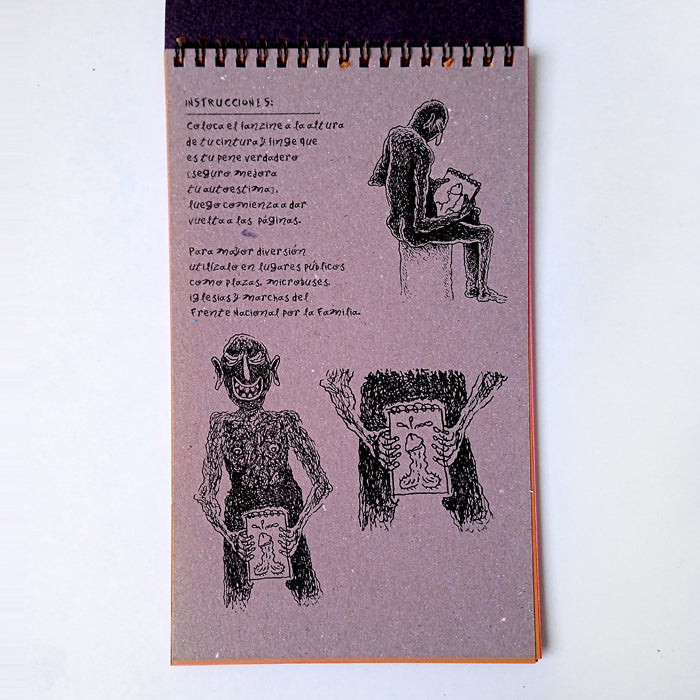 INSTRUCCIONES:
Coloca el fanzine a la altura
de tu cintura y finge que
es tu pene verdadero
(seguro mejora
tu autoestima),
luego comienza a dar
vuelta a las páginas.
Para mayor diversión
utilízalo en lugares públicos
como plazas, microbuses,
iglesias y marchas del
Frente Nacional por la Familia.